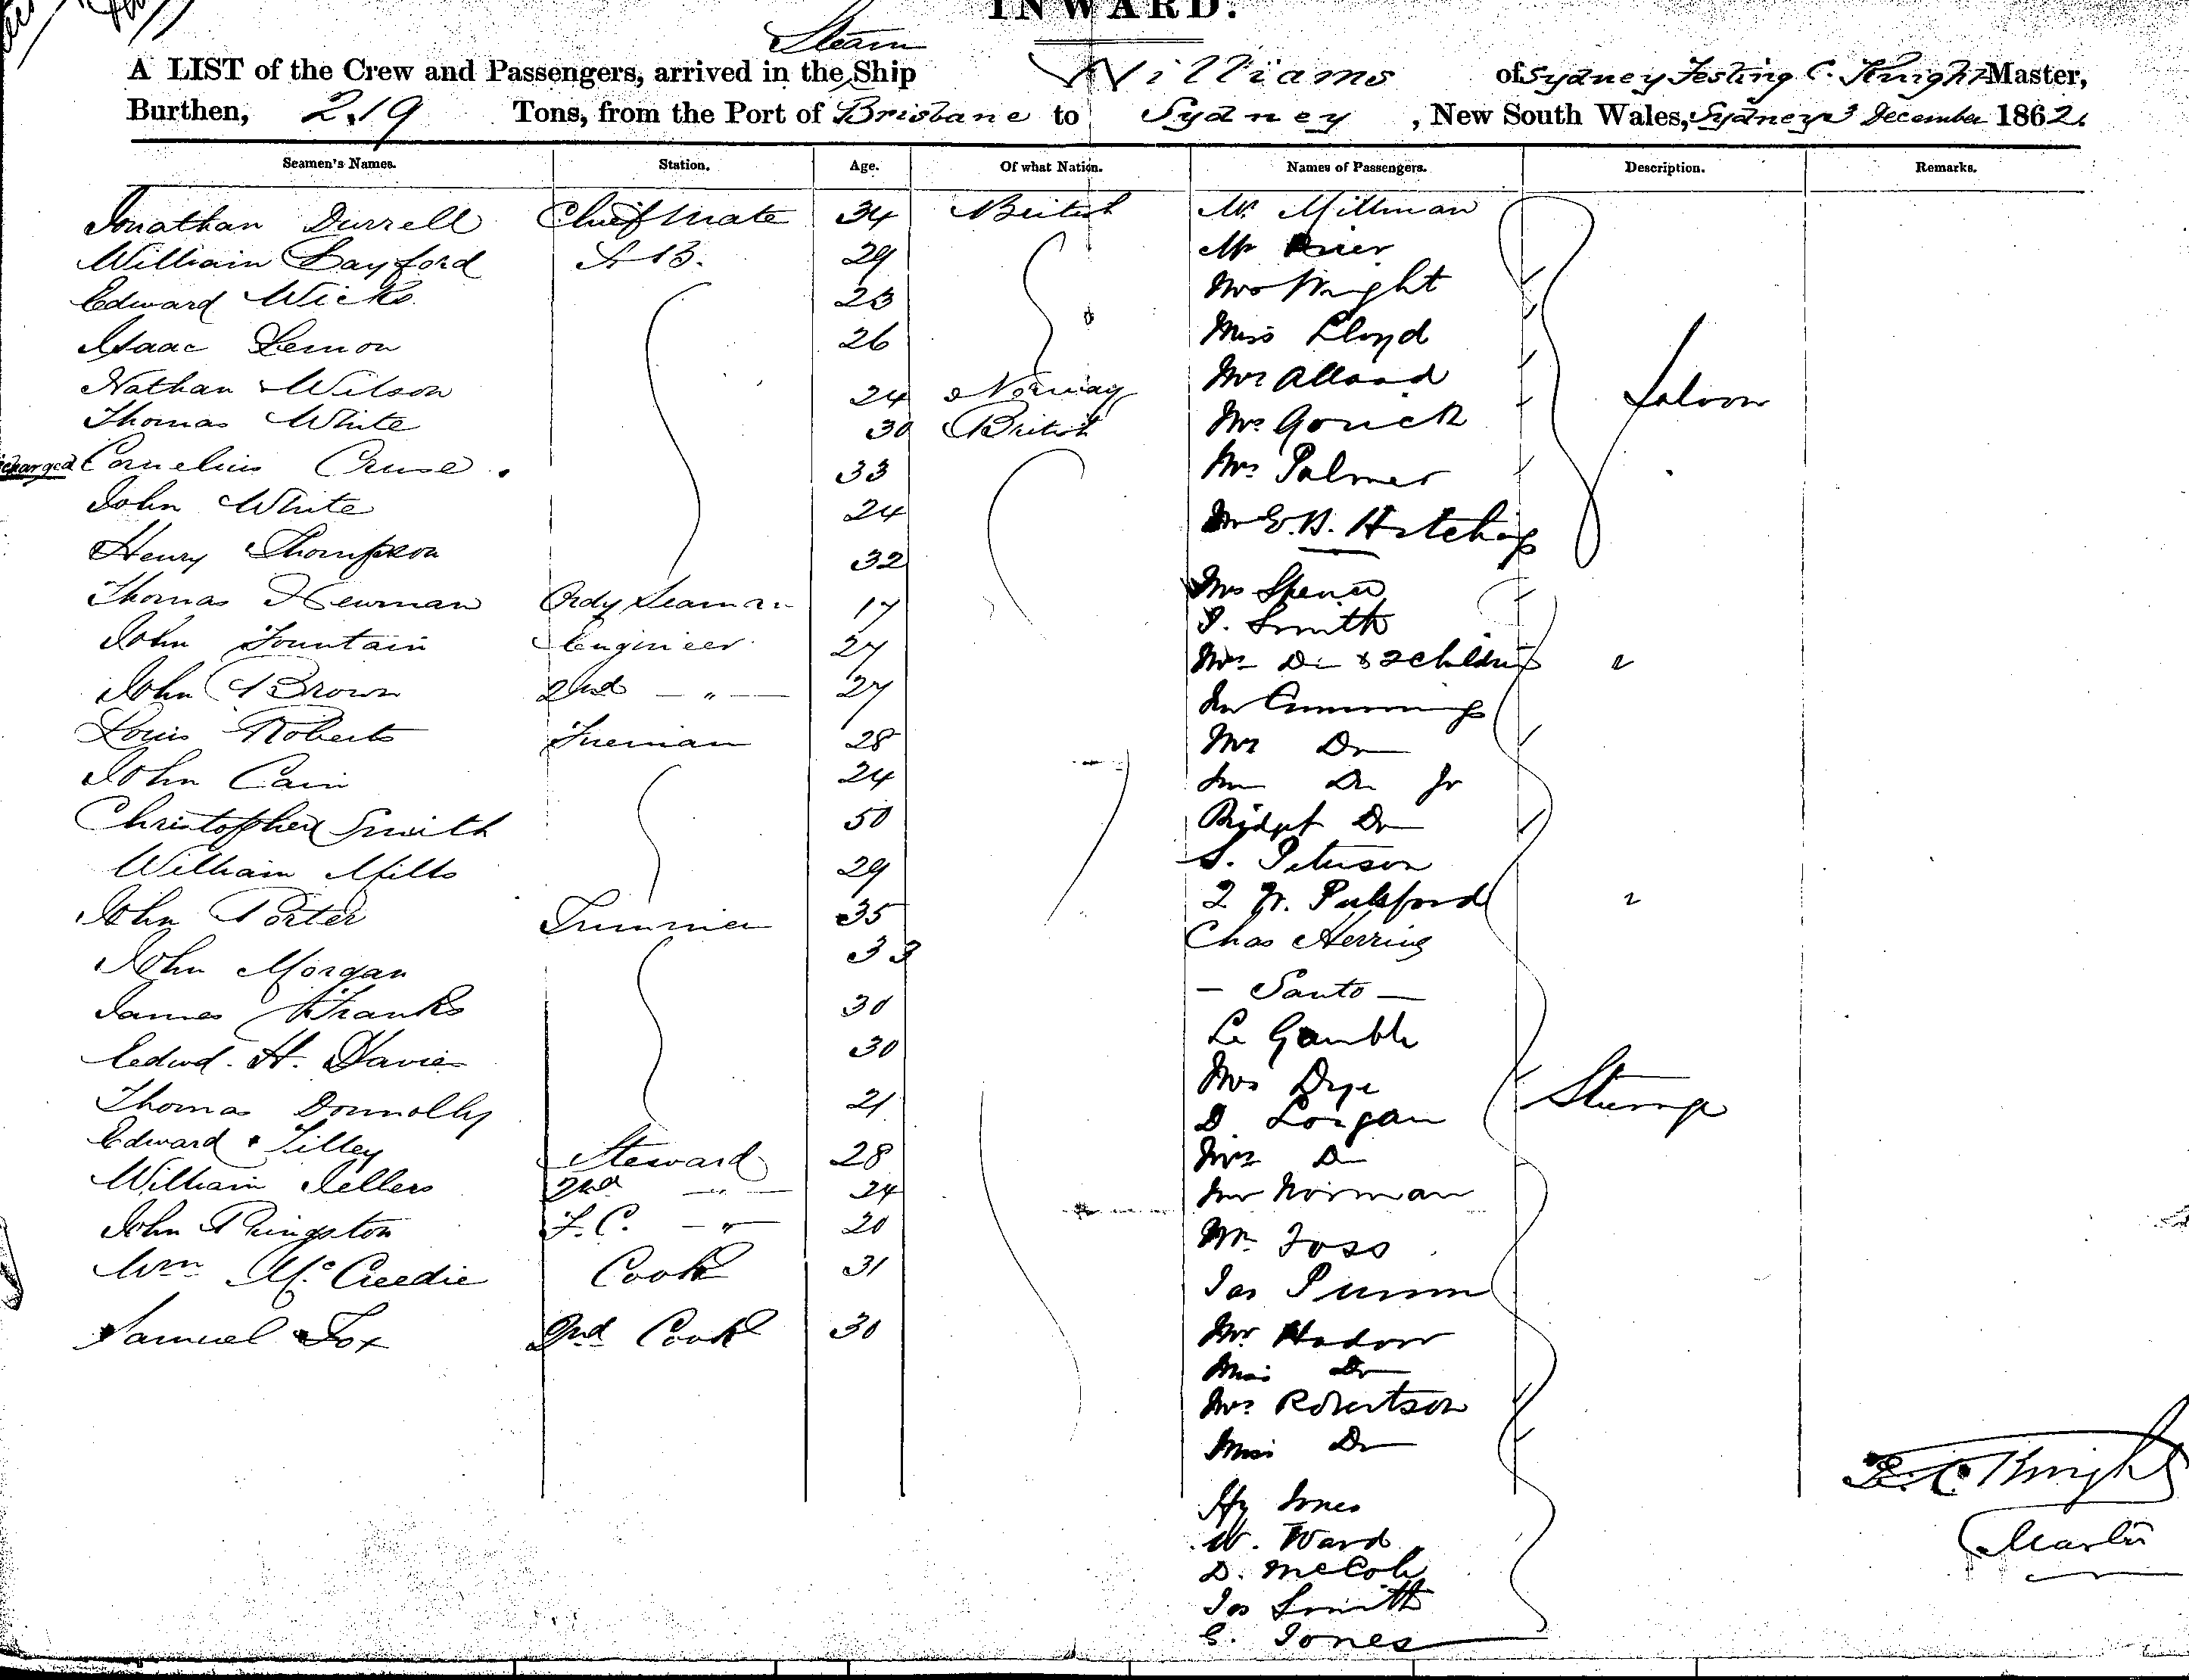 INWARD.
Steam
A LIST of the Crew and Passengers, arrived in the Ship Williams of Sydney Festing C. Knight Master,
Burthen, 219 Tons, from the Port of Brisbane to Sydney, New South Wales, Sydney 3 December 1862.
Seamen's Names. Station. Age. Of what Nation. Names of Passengers. Description. Remarks.
Jonathan Durrell Chief Mate 34 British Mr Millman
William Bayford A B. 29 Mr
Edward Wicks 23 Mrs Wright
Isaac Lemon 26 Miss Lloyd
Nathan Wilson 24 Norway Mrs Saloon
Thomas White 30 British Mrs Gorick
Cornelius Cruse 33 Mrs Palmer
John White 24 Mr E. B. Hutchings
Henry Thompson 32
Thomas Newman Ordy Seaman 17 Mrs Spence
J. Smith
John Fountain Engineer 27 Mrs Do & 2 children "
John Brown 2nd — " — 27 Mr Cummings
Louis Roberts Fireman 28 Mrs Do
John Cain 24 Do Jr
Christopher Smith 50 Bridget Do
William Mills 29 S. Peterson
John Porter Trimmer 35 Pulsford "
John Morgan 33 Chas Herring
James Franks 30 — Santo —
Edwd. H. Davies 30 Le Gamble
Mrs Dye
Thomas Donnolly 21 D. Lorgan Steerage
Edward Tilley Steward 28 Mrs Do
William Sellers 2nd — " — 24 Mr Norman
John Kingston F. C. — " — 20 Mr Foss
Wm McCreedie Cook 31 Jas
Samuel Fox 2nd Cook 30 Mr
Miss Do
Mrs Robertson
Miss Do
Hy Jones
W. Ward
D. McCole
Jas Smith
G. Jones
F. C. Knight
Master